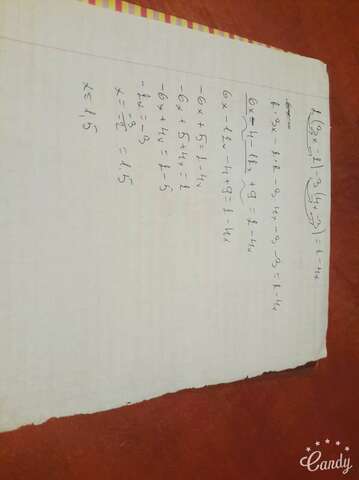 2(3x-2)-3(4x-3)=2-4x
2·3x-2·2-3·4x-3·-3=2-4x
6x-4-12x+9=2-4x
6x-12x-4+9=2-4x
-6x+5=2-4x
-6x+5+4x=2
-6x+4x=2-5
-2x=-3
x=-3/-2=1.5
x=1,5
Candy